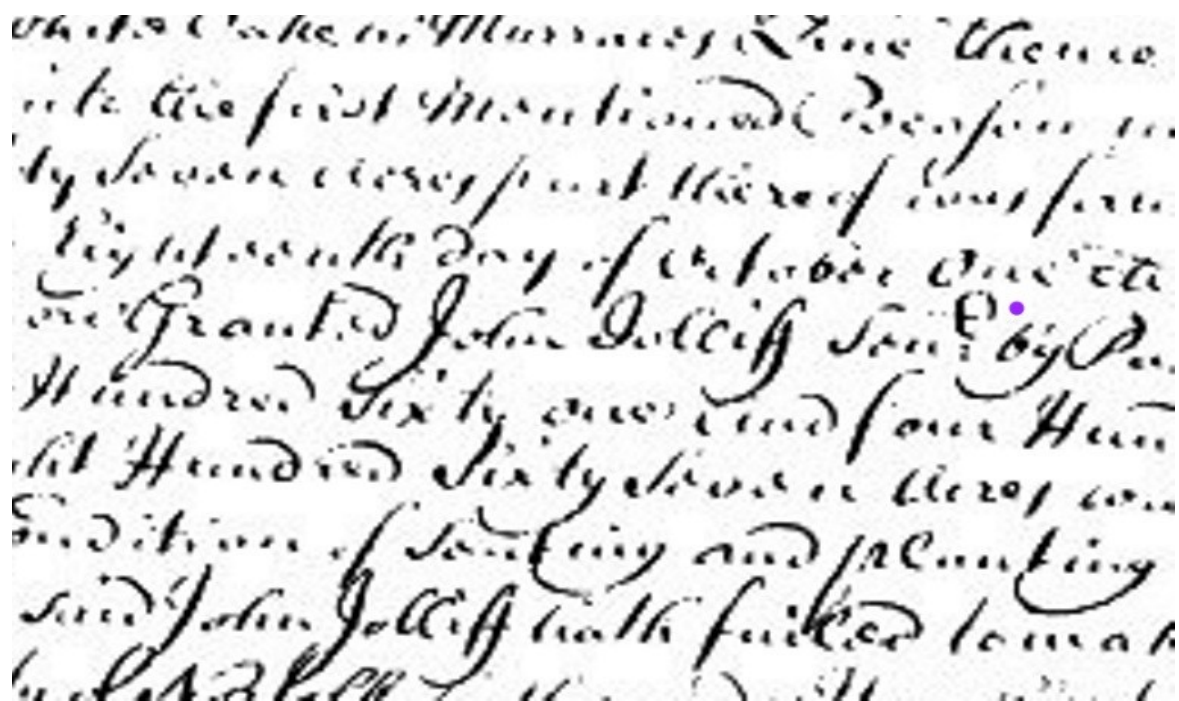 white Oake in Murraies Line thence
the first Mentioned Poason
ty Seven acres part thereof was for
Eighteenth day of October One th
Granted John Jolliff Sen.r by Pa
Hundred Sixty one and four Hun
Hundred Sixty Seven Acres
ondition of Seating and planting
said John Jolliff hath failed to mak